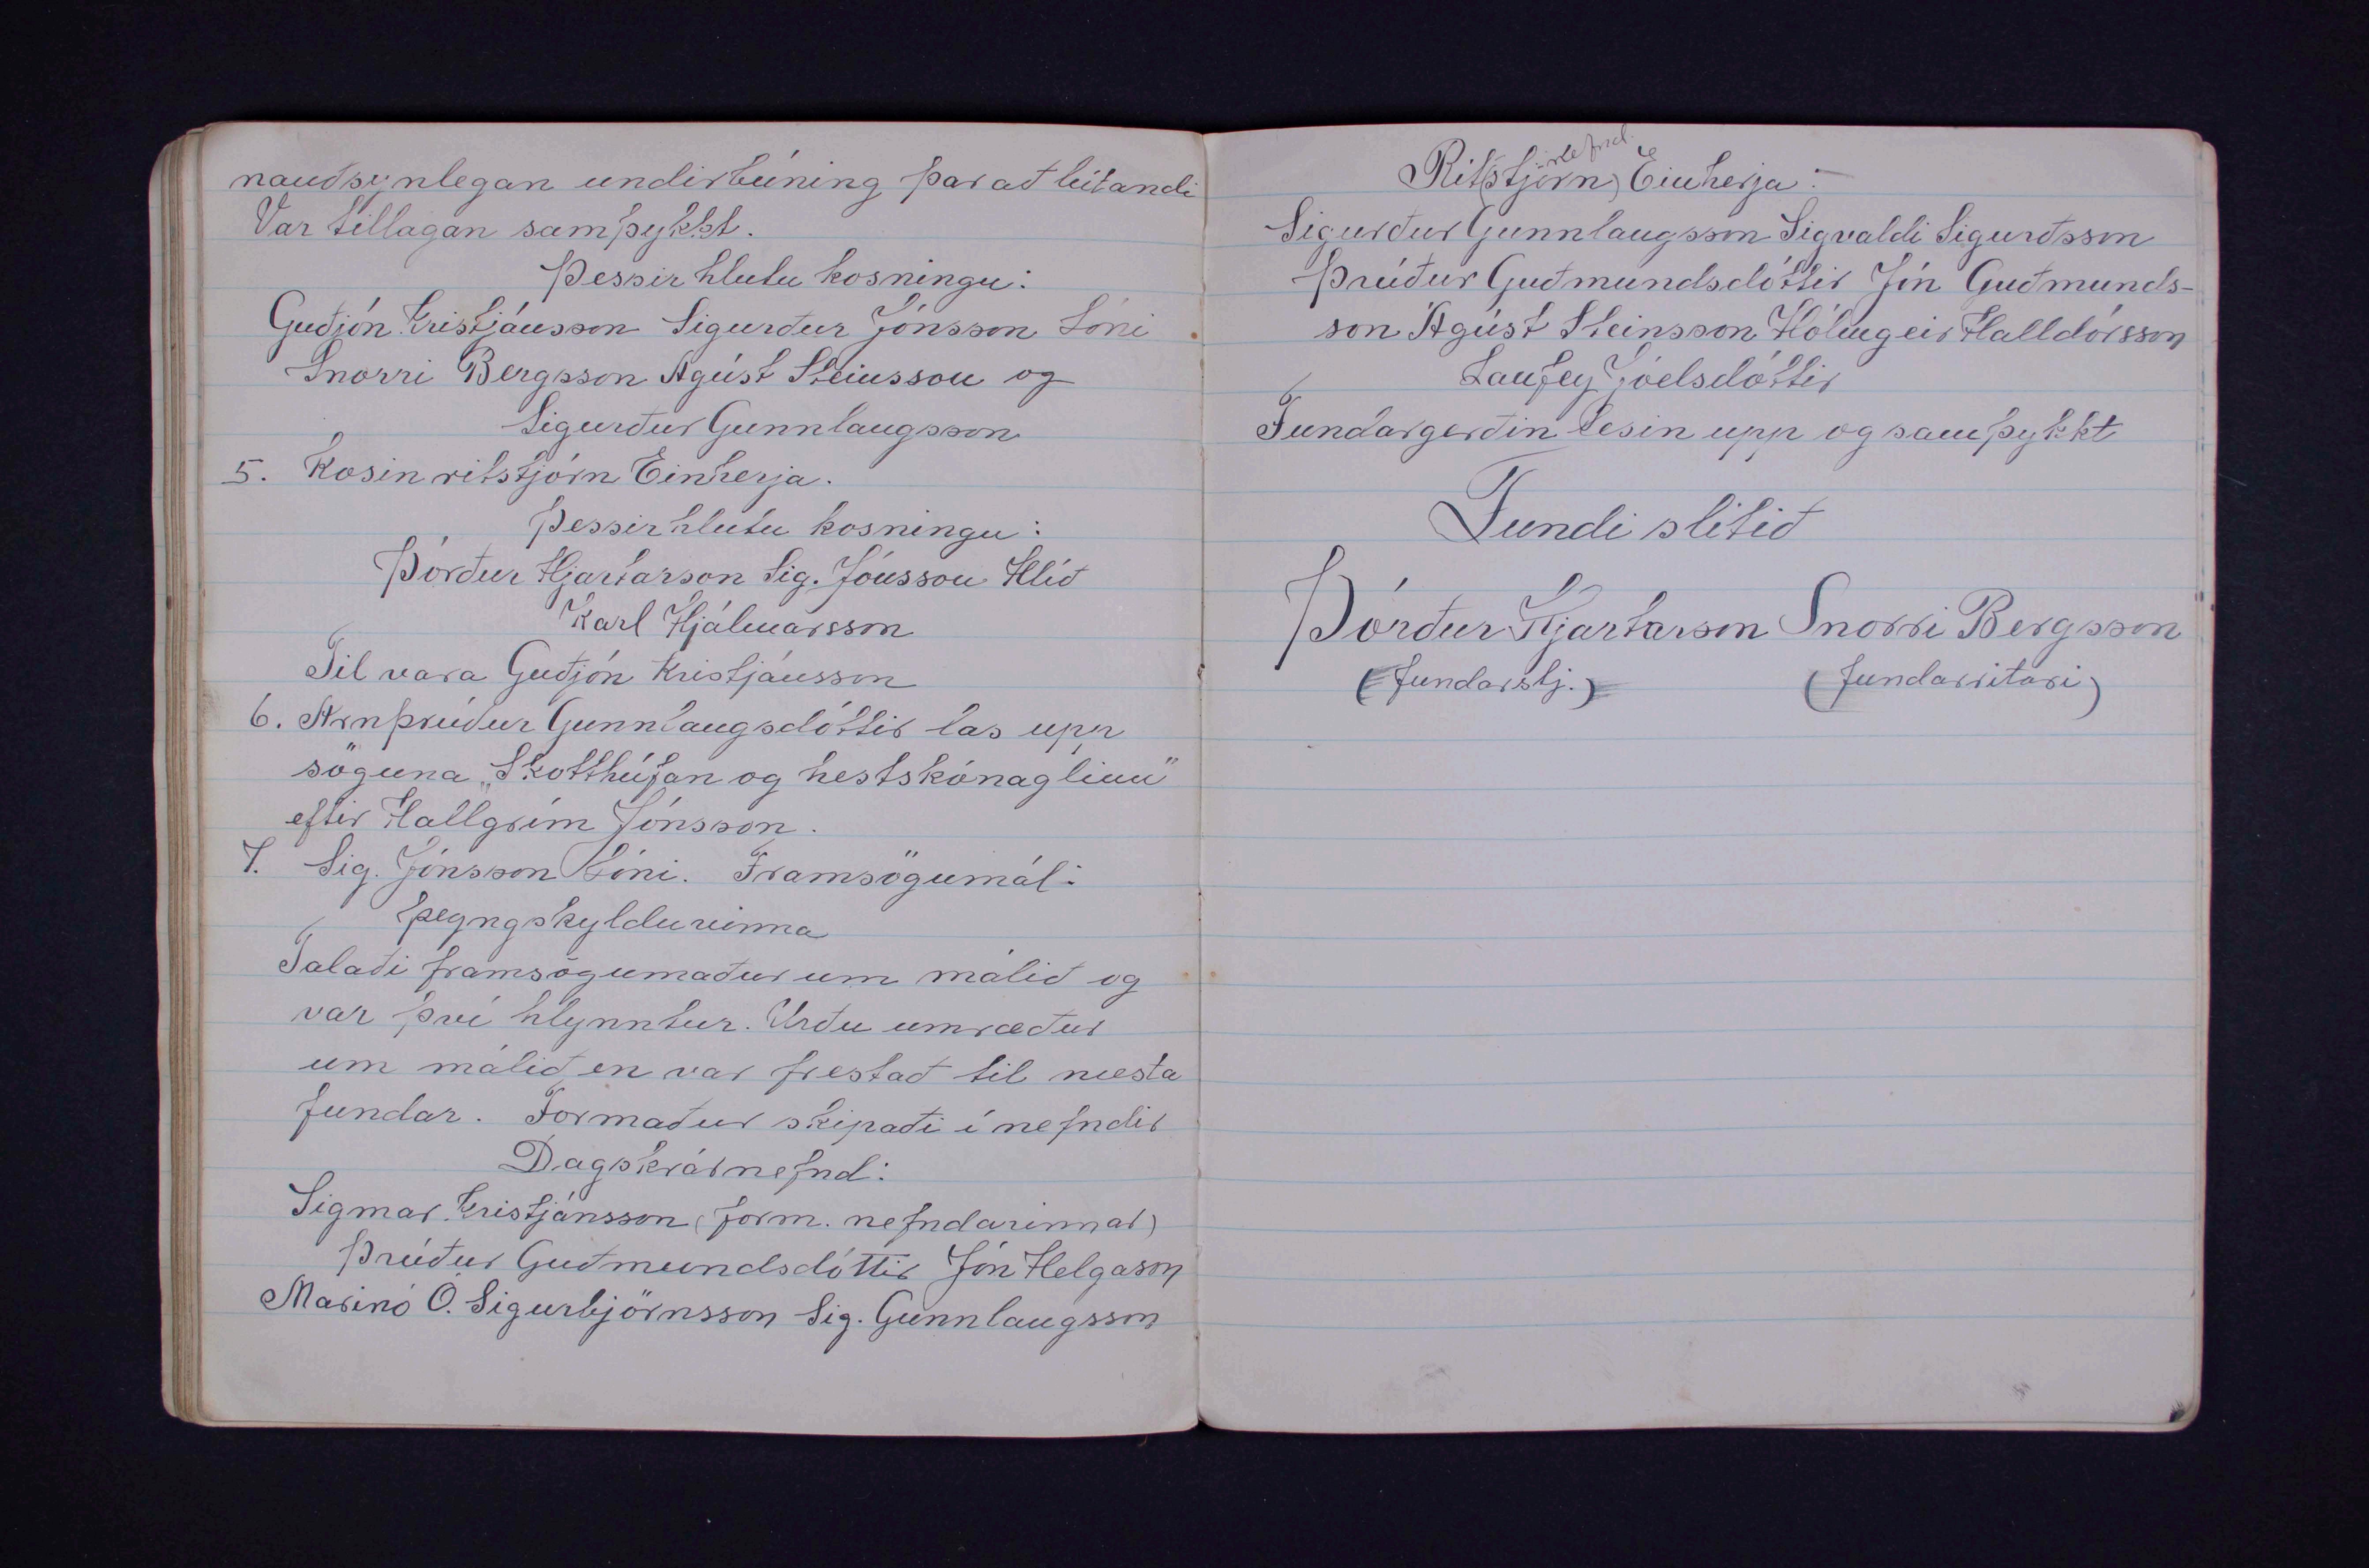 nauðsynlegan undirbúning þar að lútandi
Var tillagan samþykkt.
Þessir hlutu kosningu:
Guðjón Kristjánsson Sigurður Jónsson Lóni
Snorri Bergsson Ágúst Steinsson og
Sigurður Gunnlaugsson
5. Kosin ritstjórn Einherja.
Þessir hlutu kosningu:
Þórður Hjartarson Sig. Jónsson Hlíð
Karl Hjálmarsson
Til vara Guðjón Kristjánsson
6. Arnþrúður Gunnlaugsdóttir las upp
söguna „Skotthúfan og hestskónaglinn"
eftir Hallgrím Jónsson.
7. Sig. Jónsson Lóni. Framsögumál:
Þegngskylduvinna
Talaði framsögumaður um málið og
var því hlynntur. Urðu umræður
um málið en var frestað til næsta
fundar. Formaður skipaði í nefndir
Dagskrárnefnd:
Sigmar Kristjánsson (form. nefndarinnar)
Þrúður Guðmundsdóttir Jón Helgason
Marinó Ó. Sigurbjörnsson Sig. Gunnlaugsson
nefnd.
Rit(stjórn) Einherja:
Sigurður Gunnlaugsson Sigvaldi Sigurðsson
Þrúður Guðmundsdóttir Jón Guðmunds-
son Ágúst Steinsson Hólmgeir Halldórsson
Laufey Jóelsdóttir
Fundargerðin lesin upp og samþykkt
Fundi slitið
Þórður Hjartarson Snorri Bergsson
(fundarstj.) (fundarritari)